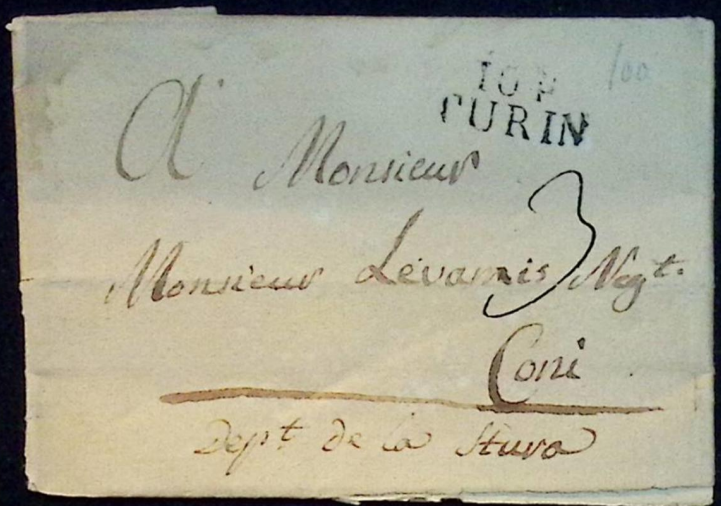 100
10 P
TURIN
A Monsieur
3
Monsieur Levamis Negt.
Coni
Dept de la Stura